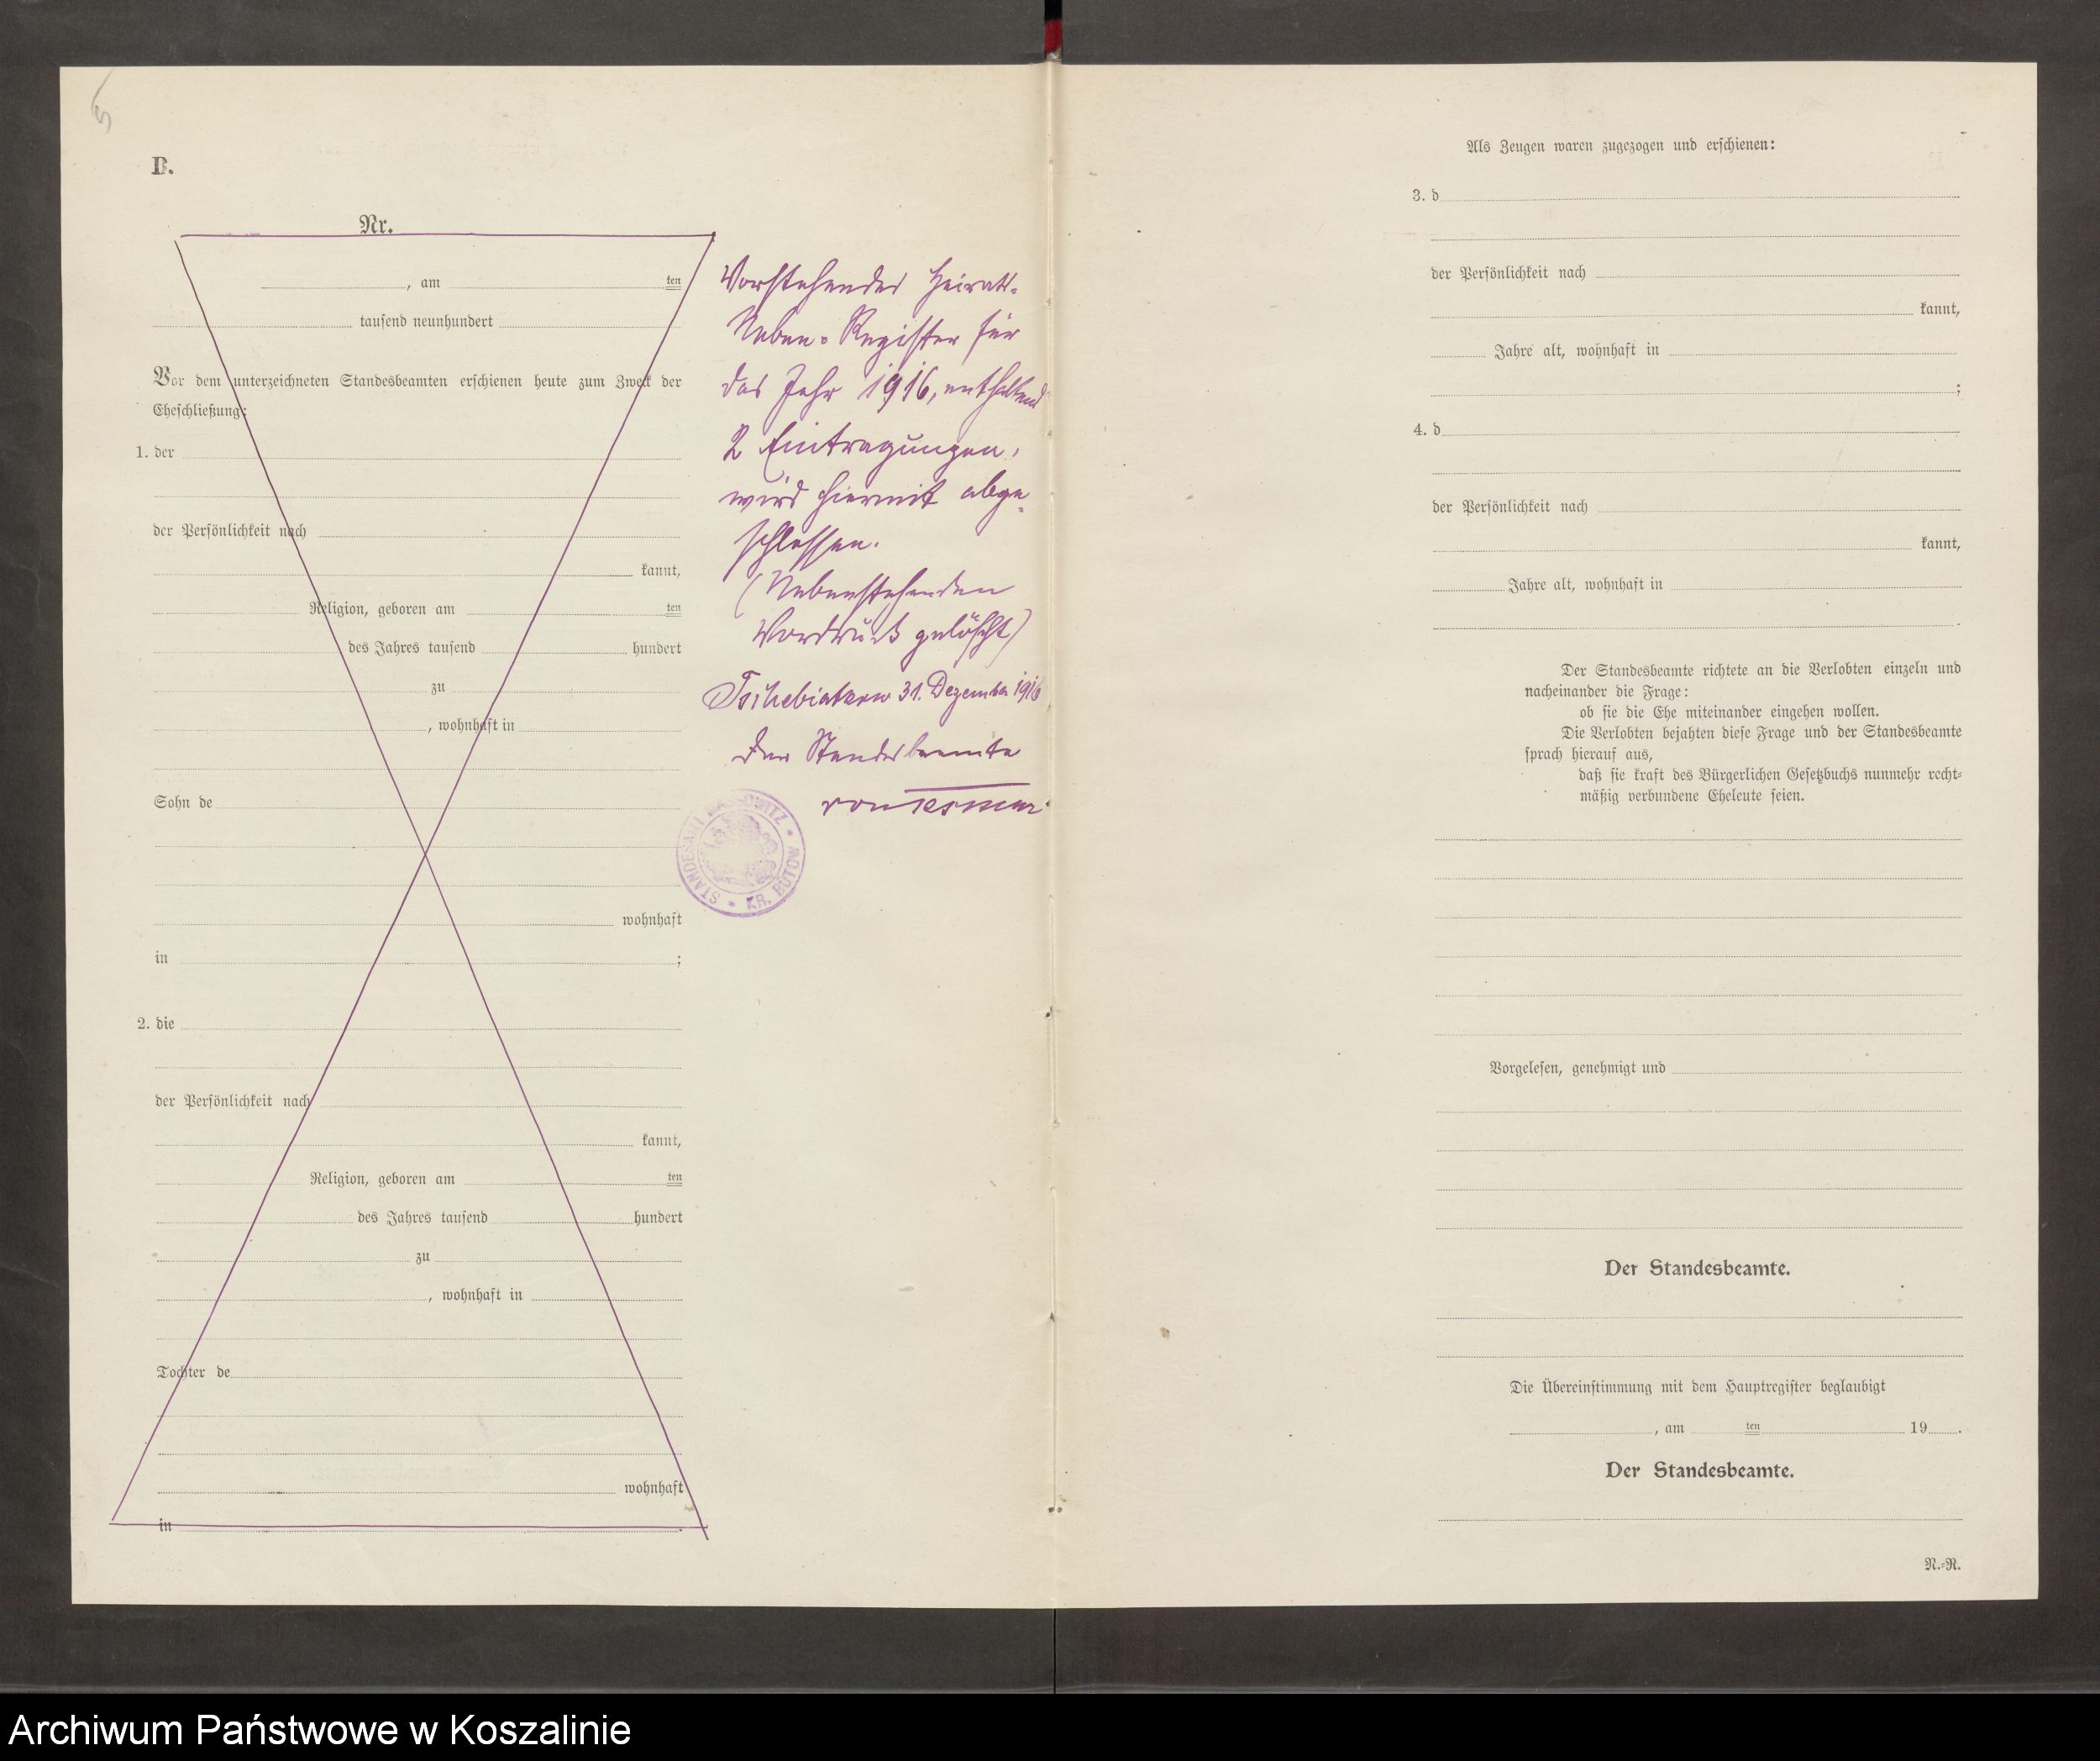 B.
Nr.
, am ten
tausend neunhundert
Vor dem unterzeichneten Standesbeamten erschienen heute zum Zweck der
Eheschließung:
1. der
der Persönlichkeit nach
kannt,
Religion, geboren am ten
des Jahres tausend hundert
zu
, wohnhaft in
Sohn de
wohnhaft
in ;
2. die
der Persönlichkeit nach
kannt,
Religion, geboren am ten
des Jahres tausend hundert
zu
, wohnhaft in
Tochter de
wohnhaft
in .
Vorstehendes Heirats-
Neben-Register für
das Jahr 1916, enthaltend
2 Eintragungen,
wird hiermit abge-
schlossen.
(Nebenstehenden
Vordruck gelöscht)
31. Dezember 1916
Der Standesbeamte
STANDESAMT • KR. BÜTOW •
Als Zeugen waren zugezogen und erschienen:
3. d
der Persönlichkeit nach
kannt,
Jahre alt, wohnhaft in
;
4. d
der Persönlichkeit nach
kannt,
Jahre alt, wohnhaft in
.
Der Standesbeamte richtete an die Verlobten einzeln und
nacheinander die Frage:
ob sie die Ehe miteinander eingehen wollen.
Die Verlobten bejahten diese Frage und der Standesbeamte
sprach hierauf aus,
daß sie kraft des Bürgerlichen Gesetzbuchs nunmehr recht-
mäßig verbundene Eheleute seien.
Vorgelesen, genehmigt und
Der Standesbeamte.
Die Übereinstimmung mit dem Hauptregister beglaubigt
, am ten 19 .
Der Standesbeamte.
N.-R.
Archiwum Państwowe w Koszalinie